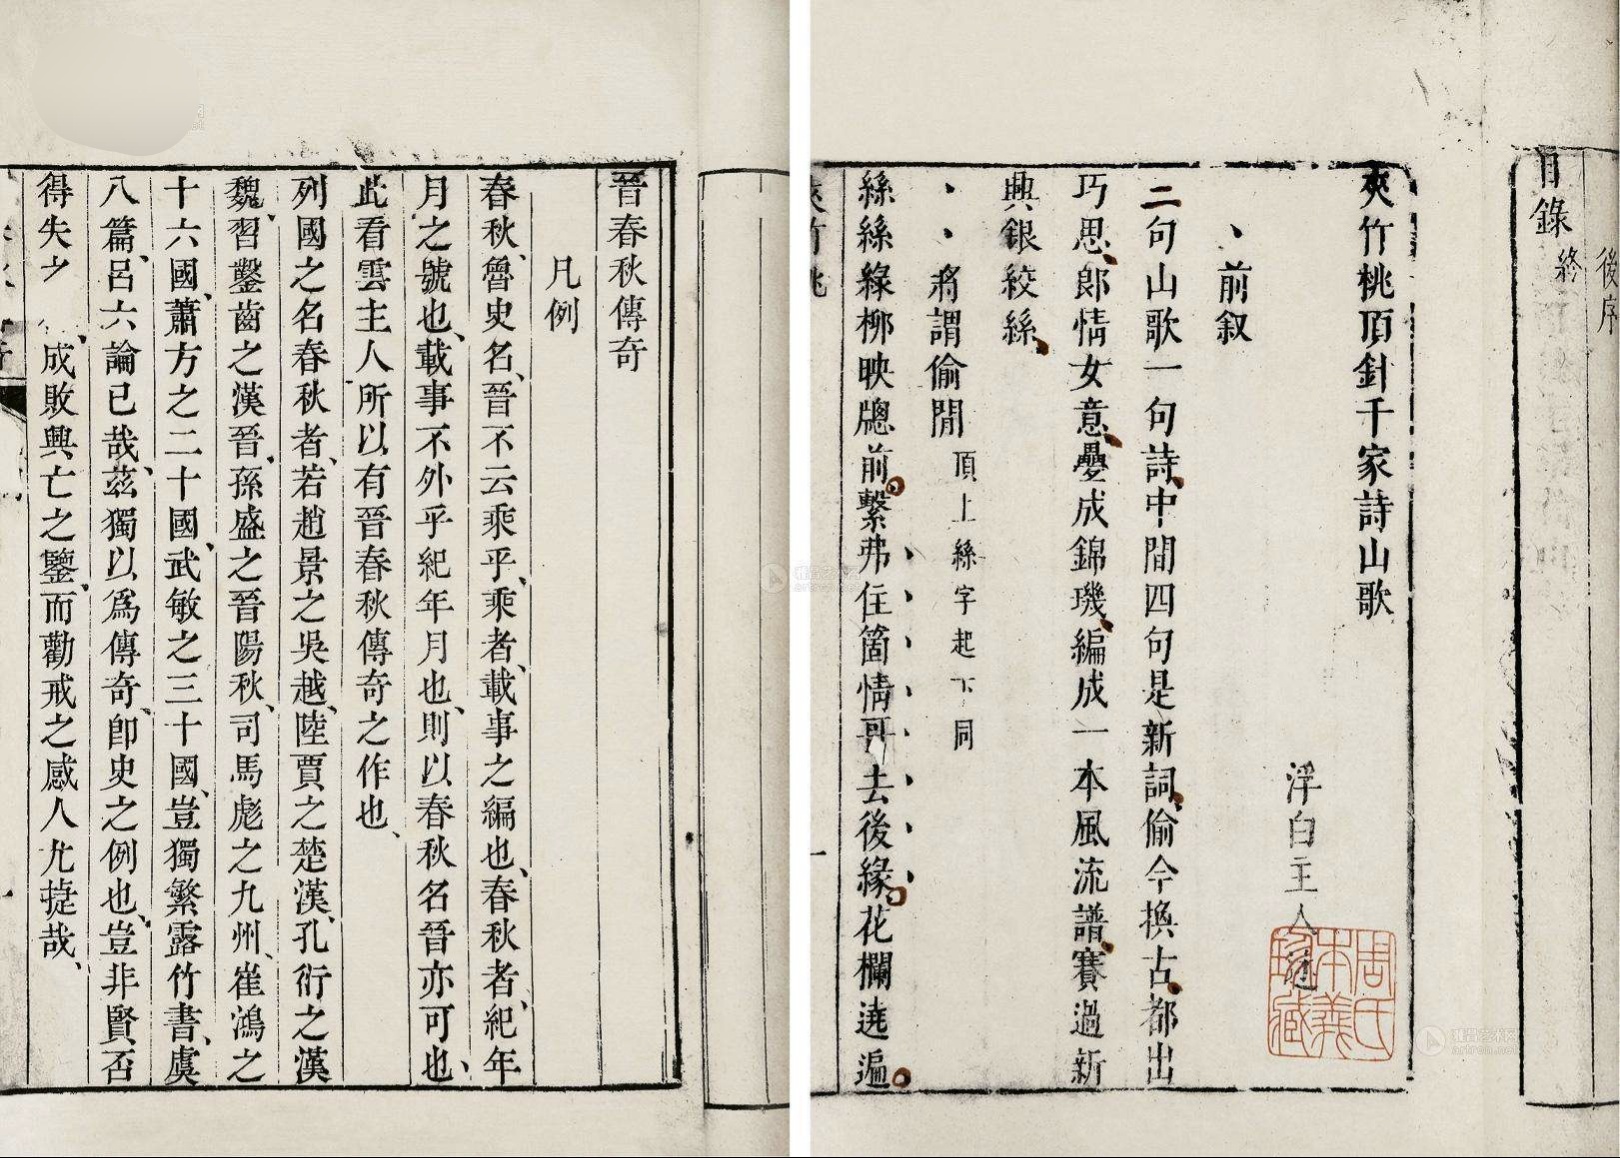 後序
目錄終
夾竹桃頂針千家詩山歌
浮白主人
周氏
本義
珍藏
前叙
二句山歌一句詩中間四句是新詞偷今換古都出
巧思郎情女意疊成錦璣編成一本風流譜賽過新
興銀絞絲
將謂偷閒頂上絲字起下同
絲絲綠柳映牕前繫弗住箇情哥去後緣花欄遶遍
夾竹桃
一
晉春秋傳奇
凡例
春秋、魯史名、晉不云乘乎、乘者、載事之編也、春秋者、紀年
月之號也、載事不外乎紀年月也、則以春秋名晉亦可也、
此看雲主人所以有晉春秋傳奇之作也、
列國之名春秋者、若趙景之吳越、陸賈之楚漢、孔衍之漢
魏、習鑿齒之漢晉、孫盛之晉陽秋、司馬彪之九州、崔鴻之
十六國、蕭方之二十國、武敏之三十國、豈獨繁露竹書、虞
八篇、呂六論已哉、茲獨以爲傳奇、卽史之例也、豈非賢否
得失之 成敗興亡之鑒、而勸戒之感人尤捷哉、